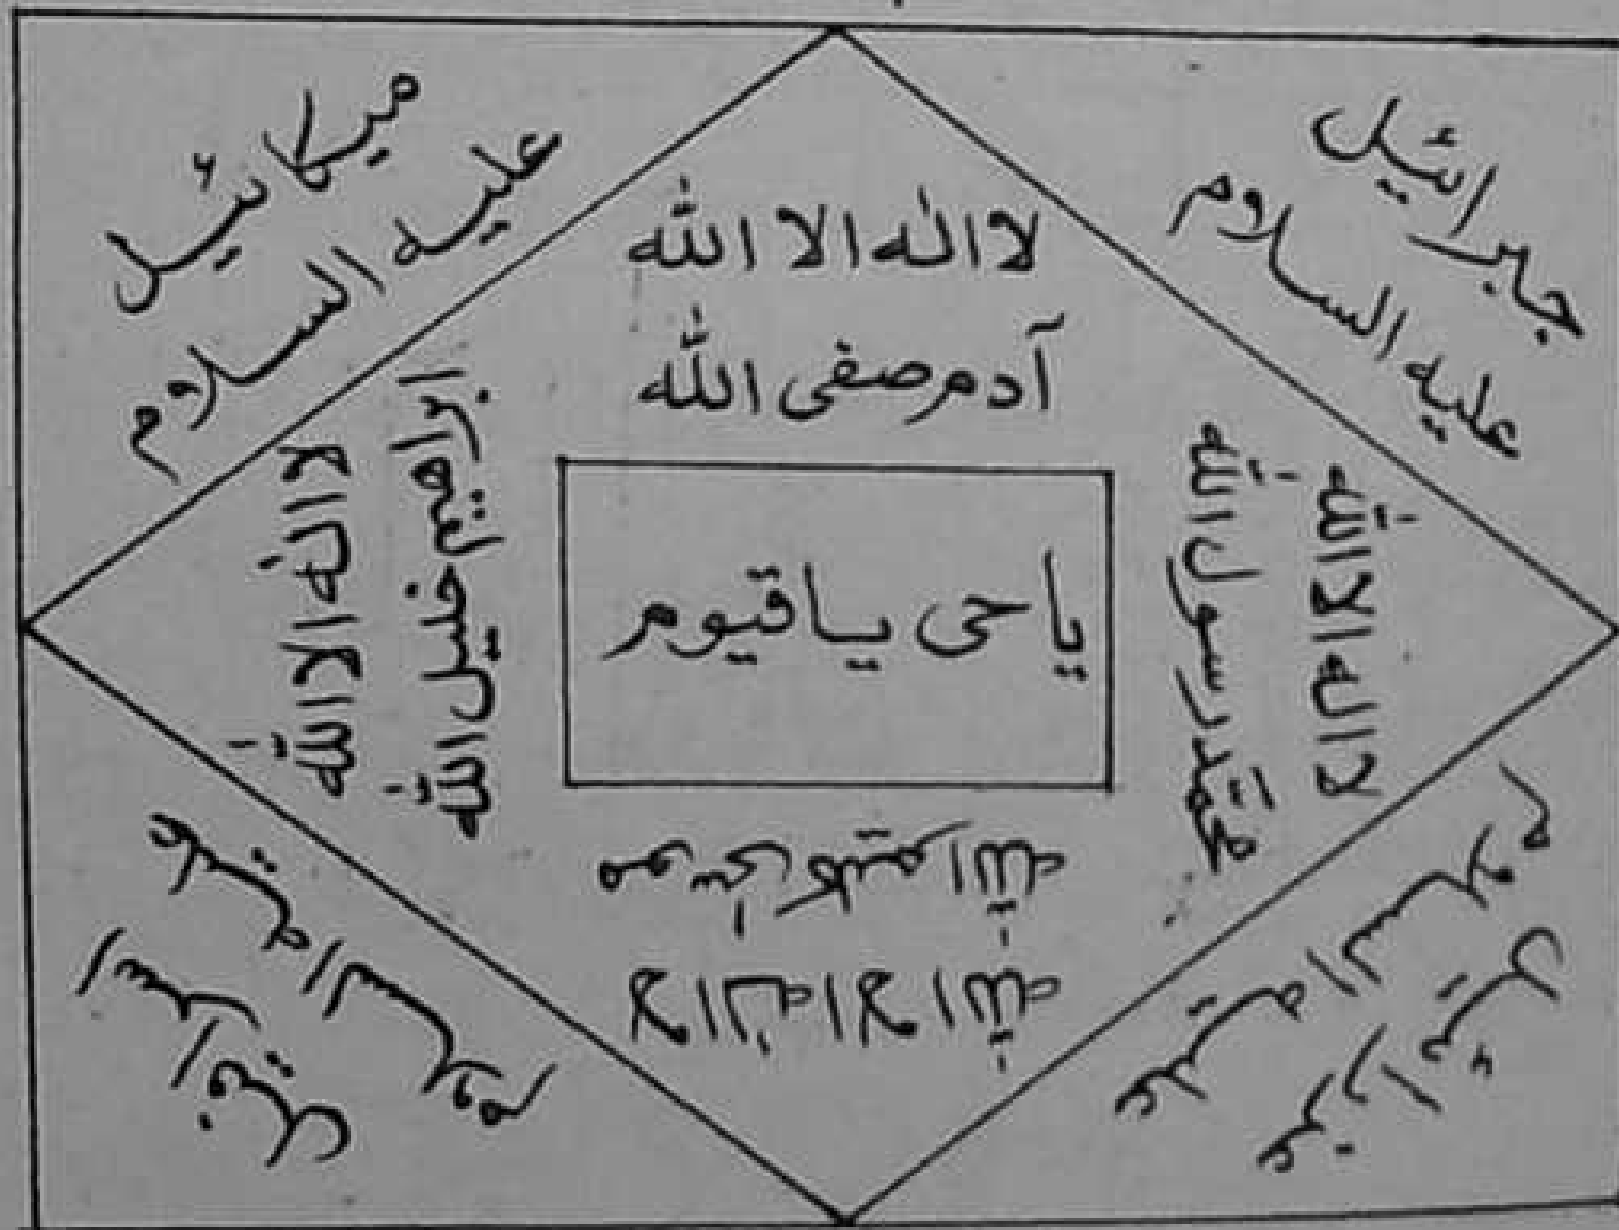 جبرائیل
علیه السلام
میکائیل
علیه السلام
لا اله الا الله
آدم صفی الله
لا اله الا الله
محمّد رسول الله
یا حی یا قیوم
لا اله الا الله
ابراهیم خلیل الله
لا اله الا الله
موسی کلیم الله
عزرائیل
علیه السلام
اسرافیل
علیه السلام